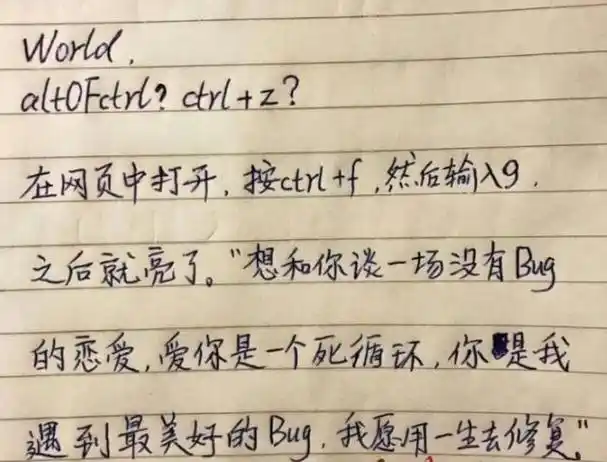 World,
alt0Fctrl? ctrl+z?
在网页中打开,按ctrl+f,然后输入9,
之后就亮了。"想和你谈一场没有Bug
的恋爱,爱你是一个死循环,你是我
遇到最美好的Bug,我愿用一生去修复。"